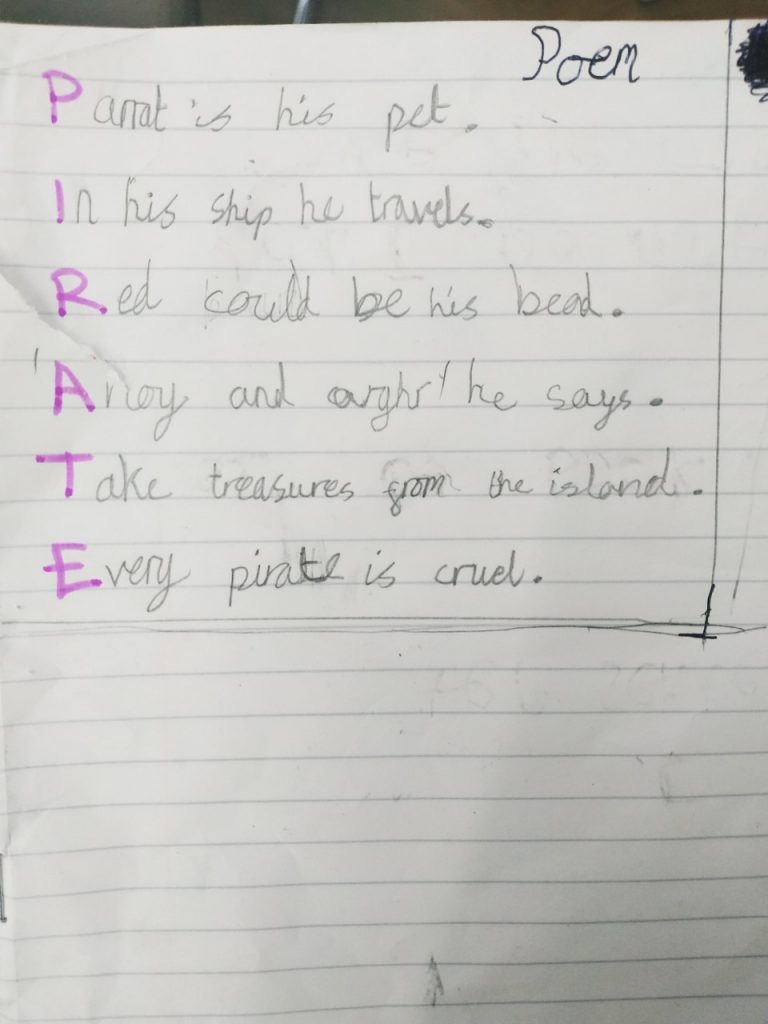 Poem
Parrat is his pet.
In his ship he travels.
Red could be his bead.
'Ahoy and arghr' he says.
Take treasures from the island.
Every pirate is cruel.